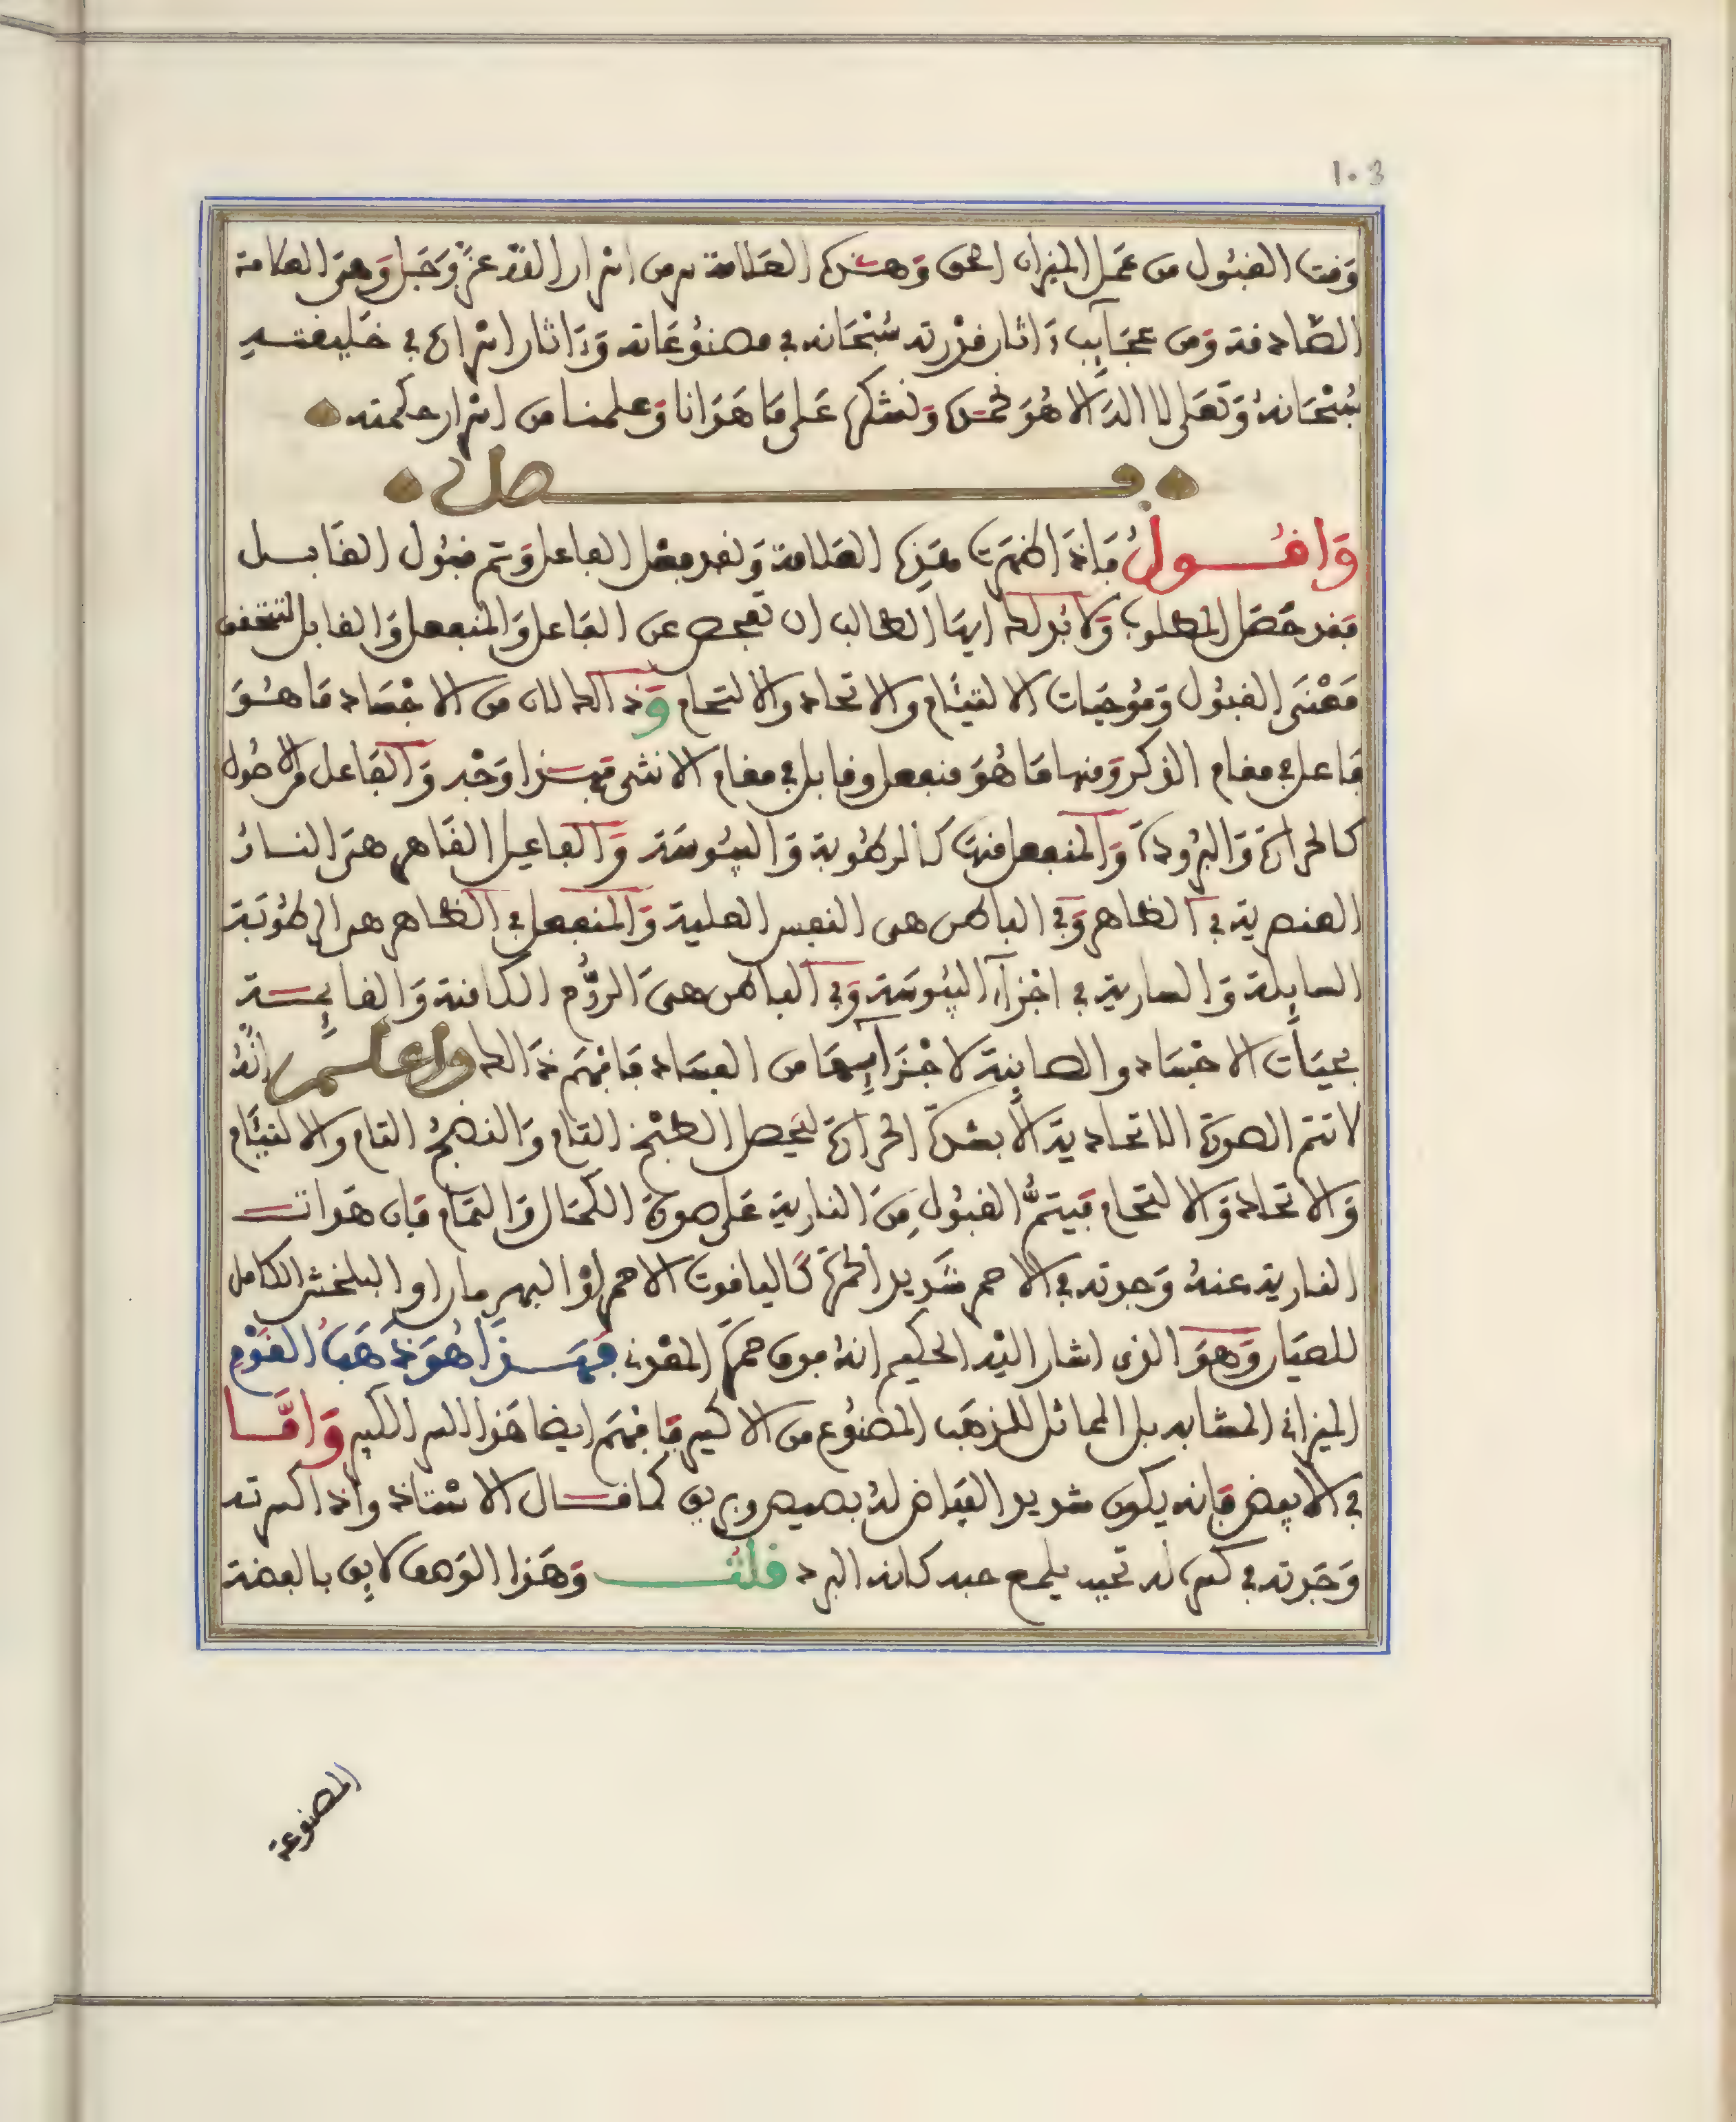 103
وَقت القبُول من عمَل الميزان الحق وَهذه العلامة سر من اسرار الله عزّ وَجَل وَهىَ العلامة
الصّادقة وَمن عجَآيِب ءَاثار قدْرته سُبْحَانه في مصنوُعَاته وَءَاثار اسراره في خليقته
سُبْحَانهُ وَتعَلى لا اله الا هُوَ نحمده وَنشكره عَلى مَا هَدَانا وَعلمنا من اسرار حكمته
فصل
وَاقُــولُ فَاذَا ظهَرت هَذِه العَلامة وَنفد فعْل الفاعل وَتم قبُول القابل
فقد حَصَل المطلوب وَلا بُد لك ايهَا الطالب ان تفحص عن الفاعل وَالمنفعل وَالقابل لتتحقق
مَعْنَى القبُول وَمُوجبَات الالتيَام والاتحاد والالتحام وَذالك لان من الاجْسَاد مَا هُوَ
فاعل في مقام الذكر وَمنها مَا هُوَ منفعل وقابل في مقام الانثى فهذا وَجْه وَالفاعل في الاصُول
كالحرارة وَالبرُودة وَالمنفعل فيهَا كالرطُوبة وَاليبُوسَة وَالفاعل القَاهر هىَ النارُ
العنصرية في الظاهر وَفي الباطن هى النفس العلية وَالمنفعل في الظاهر هى الرطُوبَة
السايلة وَالسارية في اجْزَآء اليبُوسَة وَفي الباطن هىَ الرُّوح الكامنة وَالقايِمَة
بحيَات الاجسَاد والصاينة لاجْزَآيِهَا من الفسَاد فَافهَم ذَالك واعلم انّهُ
لا تتم الصورة الاتحادية الا بشدّة الحرارة ليحصل الطبْخ التام وَالنضجُ التام والالتيَام
وَالاتحاد وَالالتحام فيتمُّ القبُول مِنَ النارية عَلى صورة الكمَال وَالتمَام فان هَدات
النارية عنهُ وَجدته في الاحمر شَديد الحمرة كَاليَاقوت الاحمر اوْ البهرمان او البلخش الكامل
للصبَار وَهوَ الذى اشار اليْه الحكيم انهُ فوق حمرة المغرة فهَــذَا هُوَ ذهَبُ القَوْمِ
الميزانى المشابه بل المماثل للذهَب المصنوُع من الاكسير فافهَم ايضا هَذا السر الكبير وَامَّـا
في الابيض فانه يكون شديد البيَاض لهُ بصيص وبريق كما قــال الاسْتاذ واذا كسرته
وَجَدته في كسره له تحبيب يلمع حبه كانه البرد قلتُ وَهَذا الوَصف لايِق بالفضة
المصنوعة